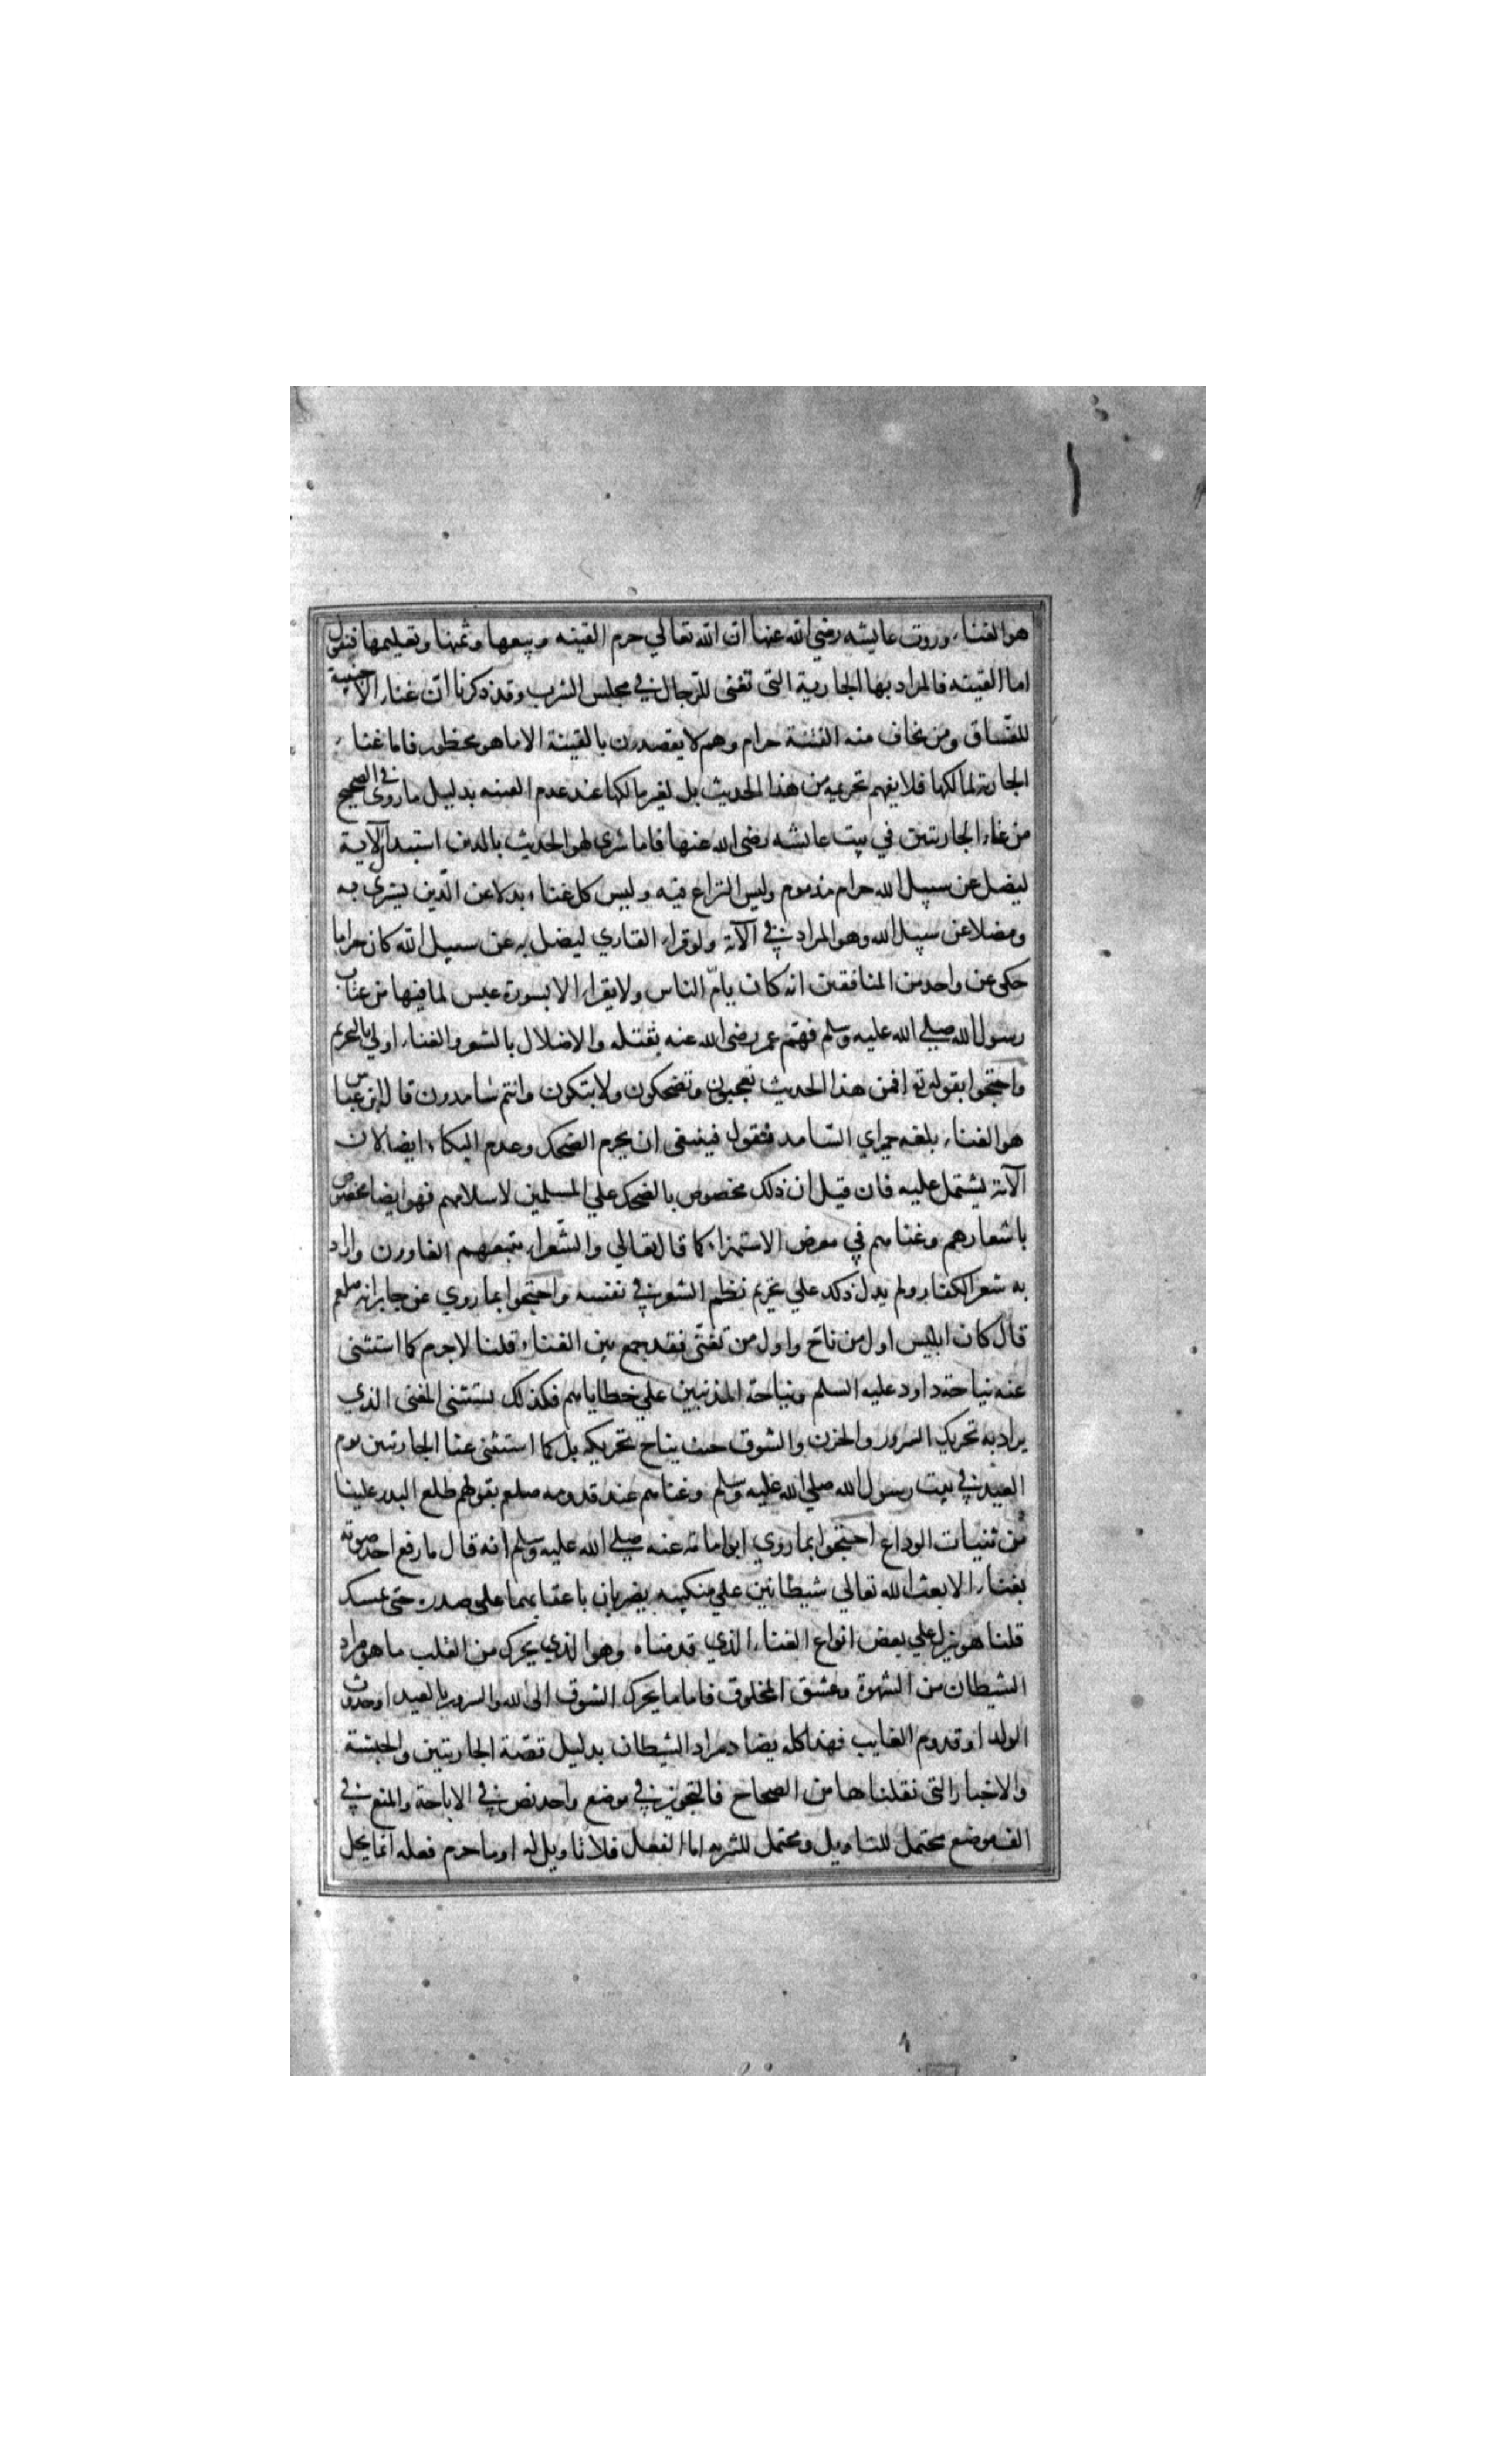 هو الغناء وروت عايشه رضي الله عنها ان الله تعالي حرم القينه وبيعها وثمنها وتعليمها فنقول
اما القينه فالمراد بها الجارية التى تغنى للرجال في مجلس الشرب وقد ذكرنا ان غناء الاجنبية
للفساق ومن يخاف منه الفتنة حرام وهم لا يقصدون بالقينة الا ما هو محظور فاما غناء
الجارية لمالكها فلا يفهم تحريمه من هذا الحديث بل لغير مالكها عند عدم الفتنه بدليل ما روى في الصحيح
من غناء الجاريتين في بيت عائشه رضى الله عنها فاما شري لهو الحديث بالدين استبدالا لاية
ليضل عن سبيل الله حرام مذموم وليس النزاع فيه وليس كل غناء بدلا عن الدين يشترى به
ومضلا عن سبيل الله وهو المراد في الآية ولو قراء القاري ليضل به عن سبيل الله كان حراما
حكى عن واحد من المنافقين انه كان يام الناس ولا يقراء الا بسورة عبس لما فيها من عتاب
رسول الله صلي الله عليه وسلم فهم عمر رضى الله عنه بقتله والاضلال بالشعر والغناء اولي بالتحريم
واحتجوا بقوله تع افمن هذا الحديث تعجبون وتضحكون ولا تبكون وانتم سامدون قال ابن عباس
هو الغناء بلغه حمراي السامد فنقول فينبغى ان يحرم الضحك وعدم البكاء ايضا لان
الآية يشتمل عليه فان قيل ان ذلك مخصوص بالضحك علي المسلمين لاسلامهم فهو ايضا مخصوص
باشعارهم وغنامهم في معرض الاستهزاء كما قال تعالي والشعراء يتبعهم الغاوون واراد
به شعر الكفار ولم يدل ذلك علي تحريم نظم الشعر في نفسه واحتجوا بما روي عن جابر انه صلعم
قال كان ابليس اول من ناح واول من تغنى فقد جمع بين الغناء قلنا لا جرم كما استثنى
عنه نياحة داود عليه السلم ونياحة المذنبين علي خطاياهم فكذلك يستثنى المغنى الذي
يراد به تحريك السرور والحزن والشوق حيث يباح تحريكه بل كما استثنى غنا الجاريتين يوم
العيد في بيت رسول الله صلي الله عليه وسلم وغناهم عند قدومه صلعم بقولهم طلع البدر علينا
من ثنيات الوداع احتجوا بما روي ابو امامة عنه صلي الله عليه وسلم انه قال ما رفع احد صوته
بغناء الا بعث الله تعالي شيطانين علي منكبيه يضربان باعقابهما على صدره حتى يمسك
قلنا هو ينزل علي بعض انواع الغناء الذي قدمناه وهو الذي يحرك من القلب ما هو مراد
الشيطان من الشهوة وعشق المخلوق فاما ما يحرك الشوق الى الله والسرور بالعيد او حدوث
الولد او قدوم الغايب فهذا كله يضاد مراد الشيطان بدليل قصة الجاريتين والحبشة
والاخبار التى نقلناها من الصحاح فالتجويز في موضع واحد نص في الاباحة والمنع في
الف موضع محتمل للتاويل ومحتمل للتنزيه اما الفعل فلا تاويل له او ما حرم فعله انما يحل